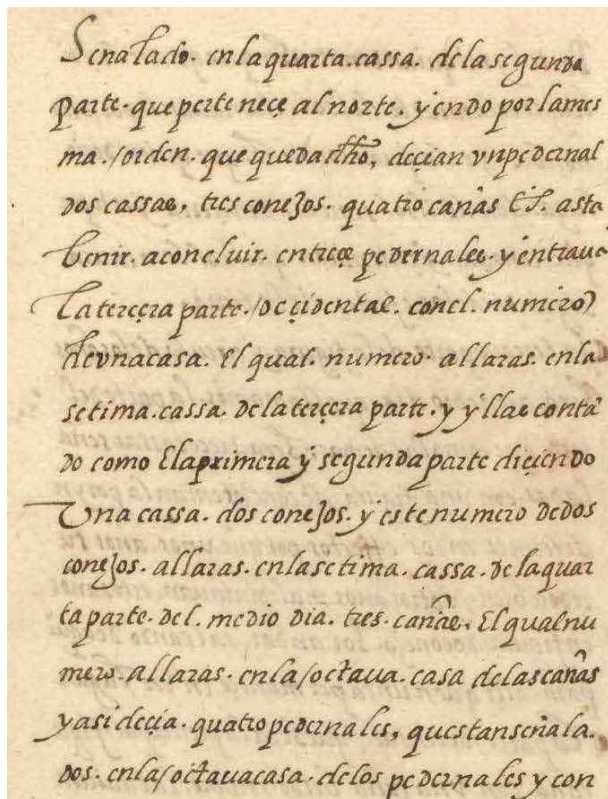 Señalado. en la quarta. cassa. de la segunda
parte. que perteneçe al norte. yendo por la mes
ma. /orden. que queda dho, deçian vn pedernal
dos cassas, tres conejos. quatro cañas Eª. asta
benir. a concluir. en treçe pedernales. y entraua
la terçera parte. /occidental. con el. numero
de vna casa. El qual. numero. allaras. en la
setima. cassa. de la terçera parte. y yllas conta
do como E la primera y segunda parte diçiendo
Vna cassa. dos conejos. y este numero de dos
conejos. allaras. en la setima. cassa. de la quar
ta parte. del. medio dia. tres. cañas. El qual nu
mero. allaras. en la /octaua. casa de las cañas
y asi deçia. quatro pedernales, questan señala.
dos. en la /octaua casa. de los pedernales y con